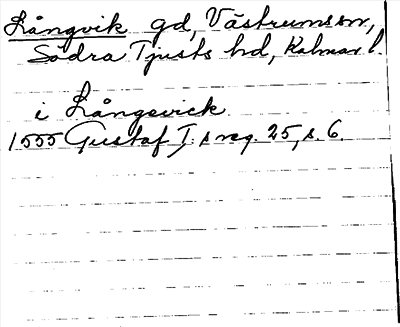 Långvik gd, Västrums sn,
Södra Tjusts hd, Kalmar l.
i Långsvick
1555 Gustaf I:s reg. 25, s. 6.